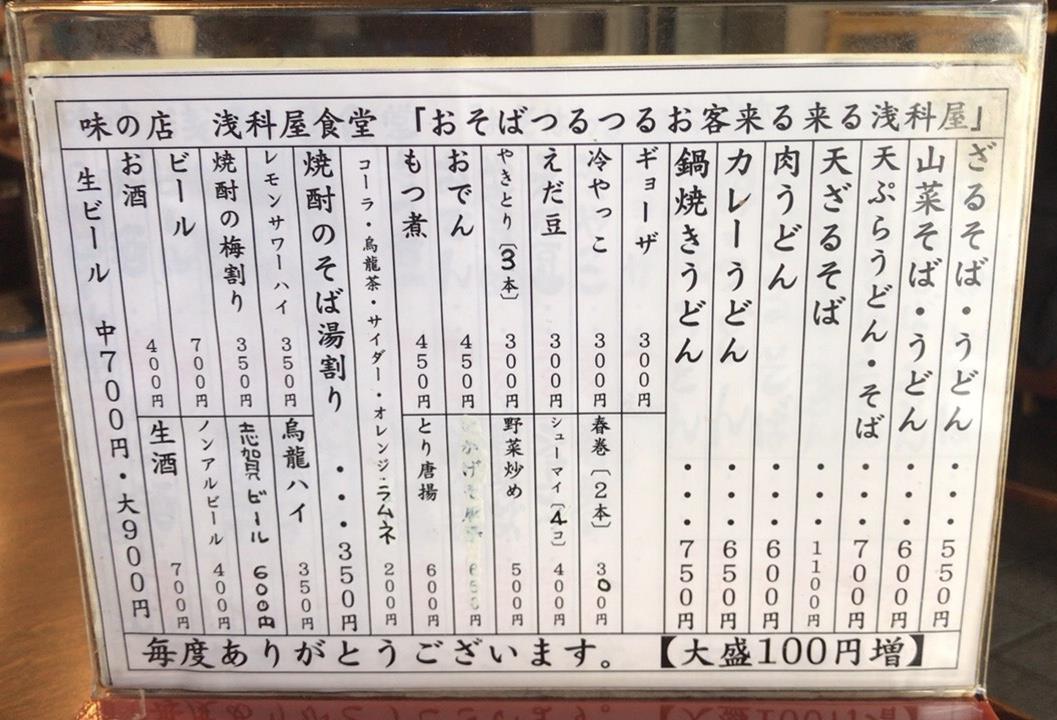 味の店 浅科屋食堂 「おそばつるつるお客来る来る浅科屋」
ざるそば・うどん・・・550円
山菜そば・うどん・・・600円
天ぷらうどん・そば・・・700円
天ざるそば・・・1100円
肉うどん・・・600円
カレーうどん・・・650円
鍋焼きうどん・・・750円
ギョーザ 300円
冷やっこ 300円
春巻〔2本〕 300円
えだ豆 300円
シューマイ〔4コ〕 400円
やきとり〔3本〕 300円
野菜炒め 500円
おでん 450円
もつ煮 450円
とり唐揚 600円
コーラ・烏龍茶・サイダー・オレンジ・ラムネ 200円
焼酎のそば湯割り・・・350円
レモンサワーハイ 350円
烏龍ハイ 350円
焼酎の梅割り 350円
志賀ビール 600円
ビール 700円
ノンアルビール 400円
お酒 400円
生酒 700円
生ビール 中700円・大900円
毎度ありがとうございます。 【大盛100円増】